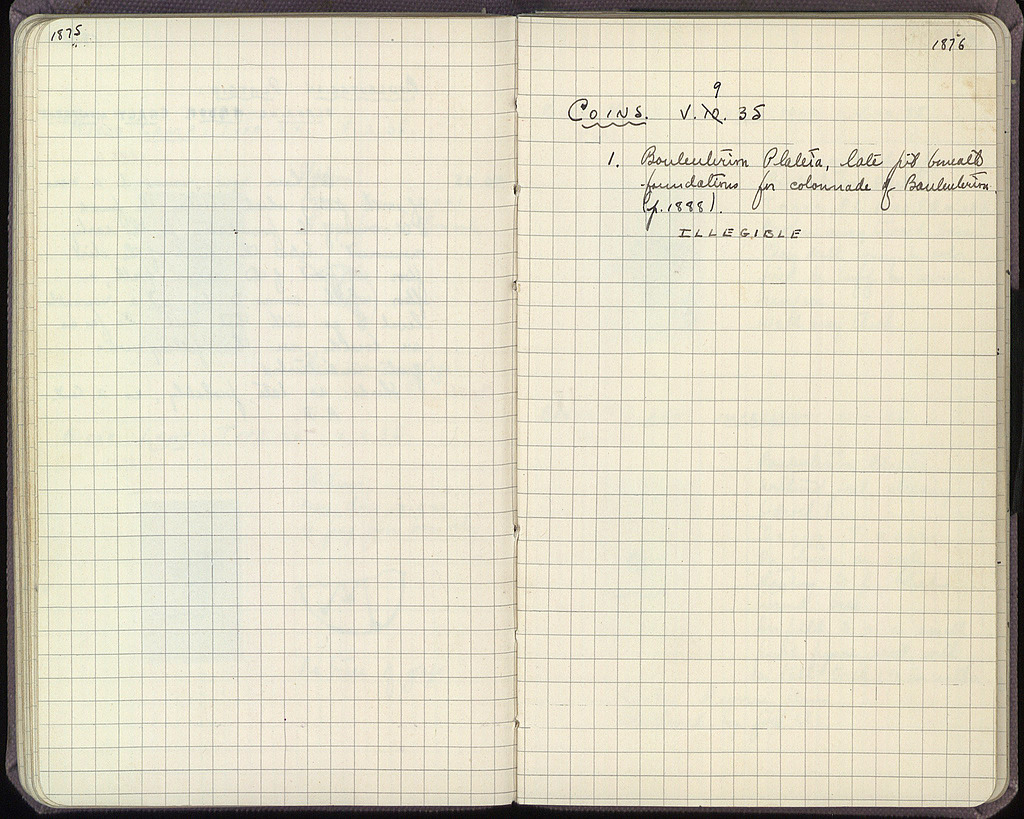 1875
1876
9
COINS. V. 10. 35
1. Bouleuterion Plateia, late pit beneath
foundations for colonnade of Bouleuterion.
(p. 1888).
ILLEGIBLE